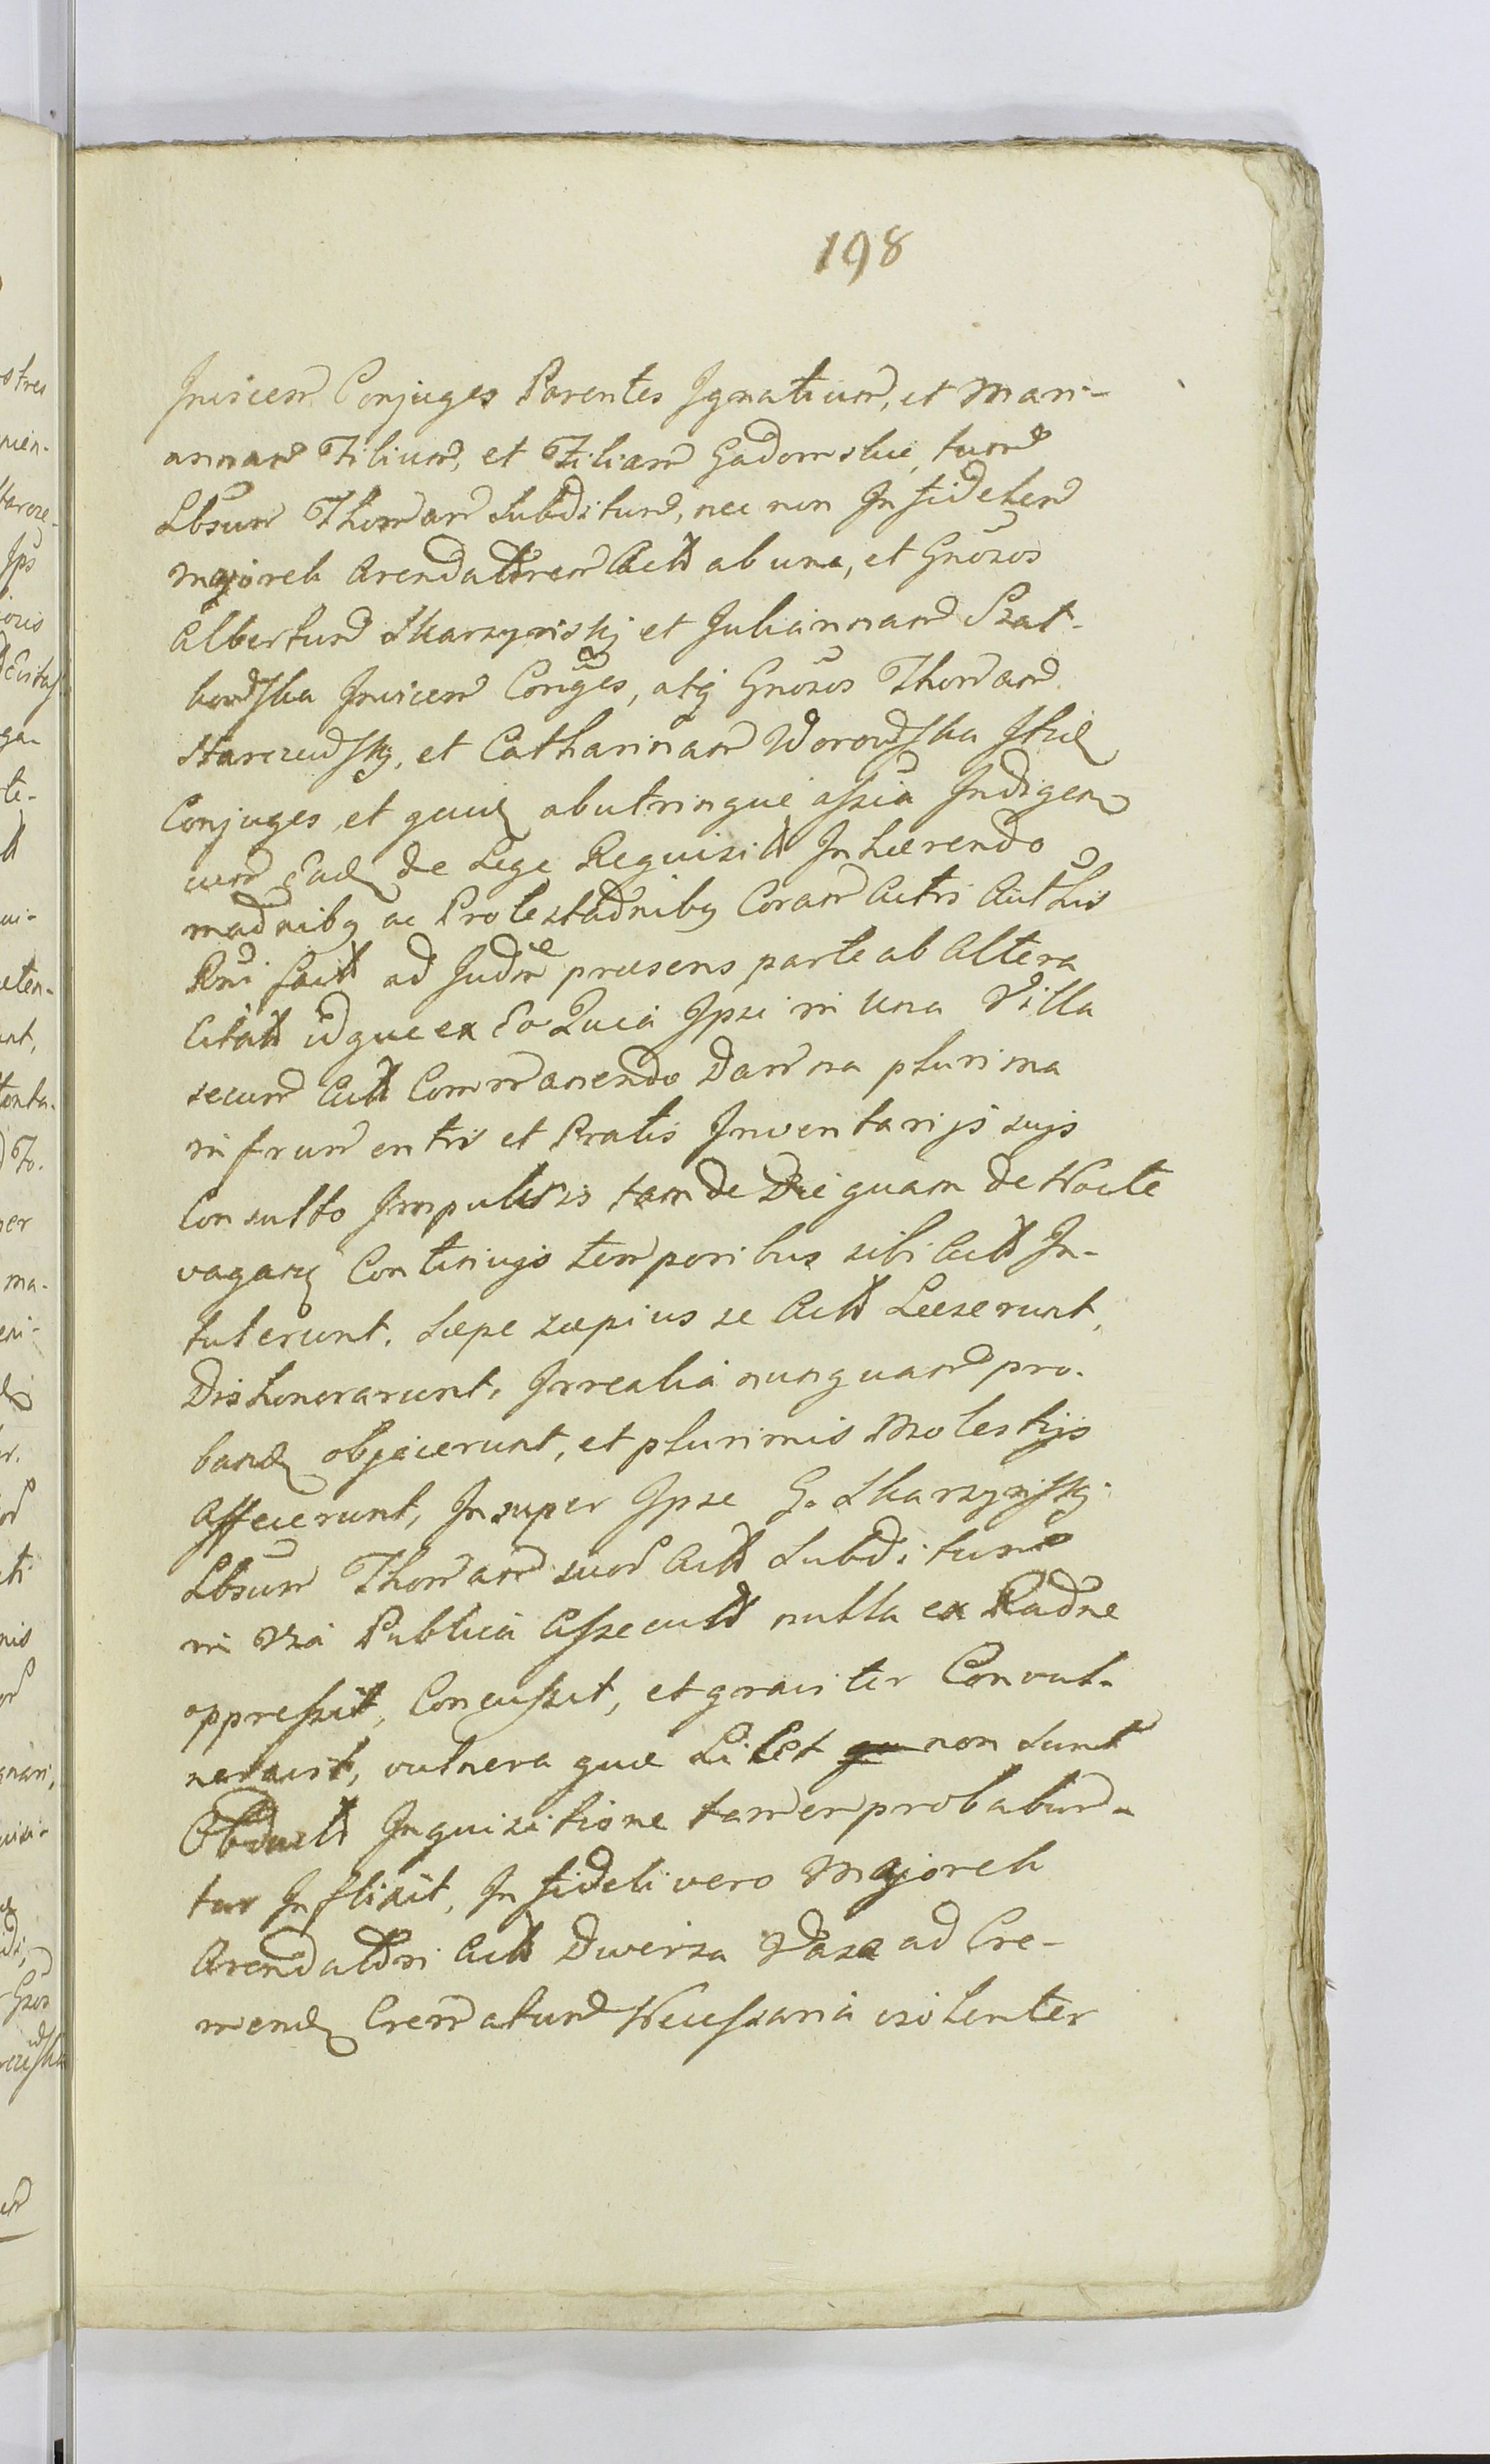 198
Invicem Conjuges Parentes Ignatium, et Mari-
annam Filium, et Filiam Gadomskie, tum
Lbsum Thomam Subditum, nec non Infidelem
Majorek Arendatorem Actt ab una, et Gnosos
Albertum Skarzynskj et Juliannam Szat-
kowska Invicem Conges, atq Gnosos Thomam
Starczewskj, et Catharinam Worowska
Conjuges, et ab utrinque assia Indigen
cum de Lege Requisitt Inhaerendo
madnibq ac Protestadnibq Coram Actis Authis
Rni factt ad Judm praesens parte ab Altera
Citatt idque ex Eo Quia Ipsi in Una Villa
secum Actt Commanendo Damna plurima
in frumentis et Pratis Inventarijs sujs
Consulto Impulsis tam de Die quam de Nocte
vagan Continujs temporibus sibi Actt In-
tulerunt. Saepe saepius se Actt Laeserunt,
Dishonorarunt, Irrealia nunquam pro-
band objecerunt, et plurimis Molestijs
Affecerunt, Insuper Ipse G. Skarzynskj
Lbsum Thomam suor Actt Subditum
in Via Publica Assecutt nulla ex Radne
oppressit, Concussit, et graviter Convul-
neravit, vulnera quae Licet non sunt
Obductt Inquisitione tamen probabun-
tur Inflixit, Infideli vero Majorek
Arendatori Actt Diversa Vasa ad Cre-
mend Crematum Necessaria violenter